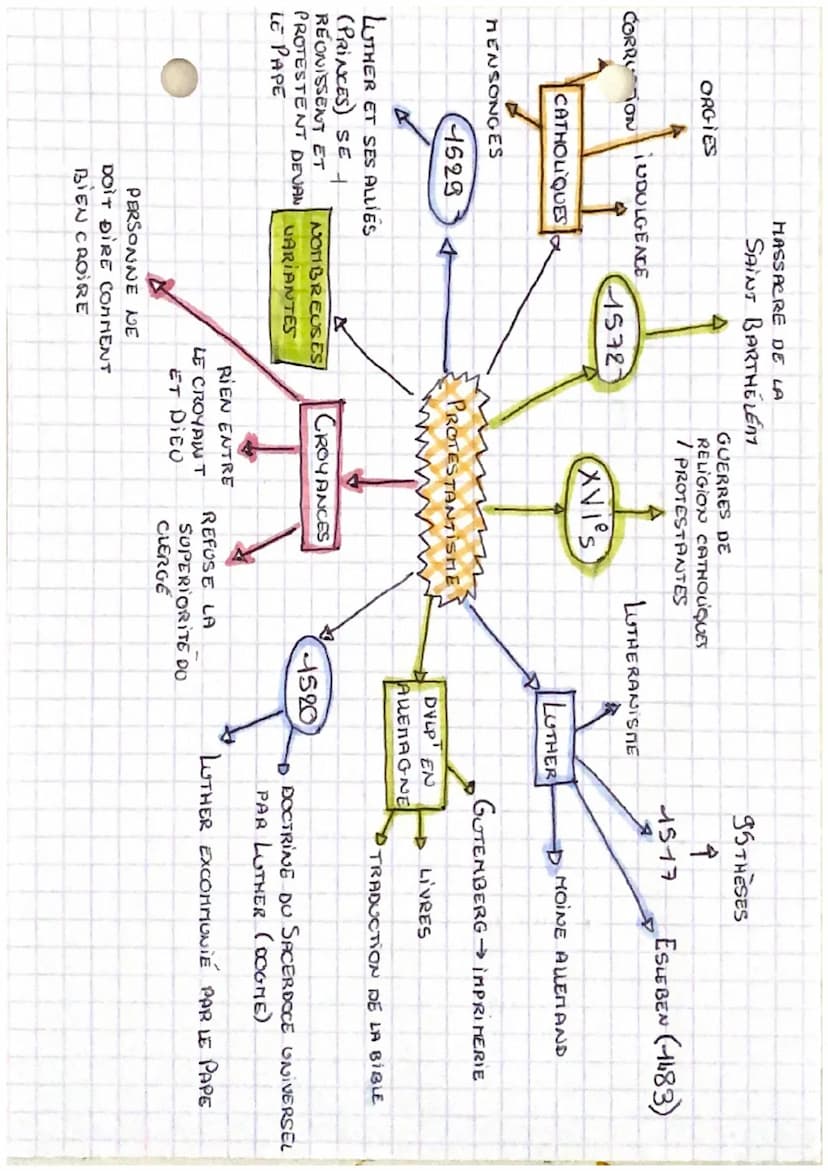 PROTESTANTISME
CATHOLIQUES
MENSONGES
ORGIES
INDULGENCE
1572
MASSACRE DE LA
SAINT BARTHÉLÉMY
XVIe S
GUERRES DE
RELIGION CATHOLIQUES
/ PROTESTANTES
LUTHER
LUTHERANISME
95 THÈSES
↑
1517
ESLEBEN (1483)
MOINE ALLEMAND
DVLPT EN
ALLEMAGNE
GUTEMBERG → IMPRIMERIE
LIVRES
TRADUCTION DE LA BIBLE
1520
DOCTRINE DU SACERDOCE UNIVERSEL
PAR LUTHER (DOGME)
LUTHER EXCOMMUNIÉ PAR LE PAPE
CROYANCES
REFUSE LA
SUPERIORITÉ DU
CLERGÉ
RIEN ENTRE
LE CROYANT
ET DIEU
PERSONNE NE
DOIT DIRE COMMENT
BIEN CROIRE
NOMBREUSES
VARIANTES
1529
LUTHER ET SES ALLIÉS
(PRINCES) SE
RÉUNISSENT ET
PROTESTENT DEVAN
LE PAPE